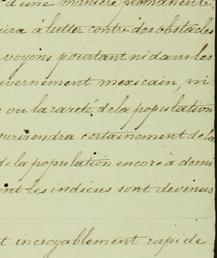 d'une manière permanente
aura à lutter contre des obstacles
voyons pourtant ni dans les
vernement mexicain, ni
ou la rareté de la population
surviendra certainement de la
de la population encore à demi
ont les indiens sont devenus
t incroyablement rapide